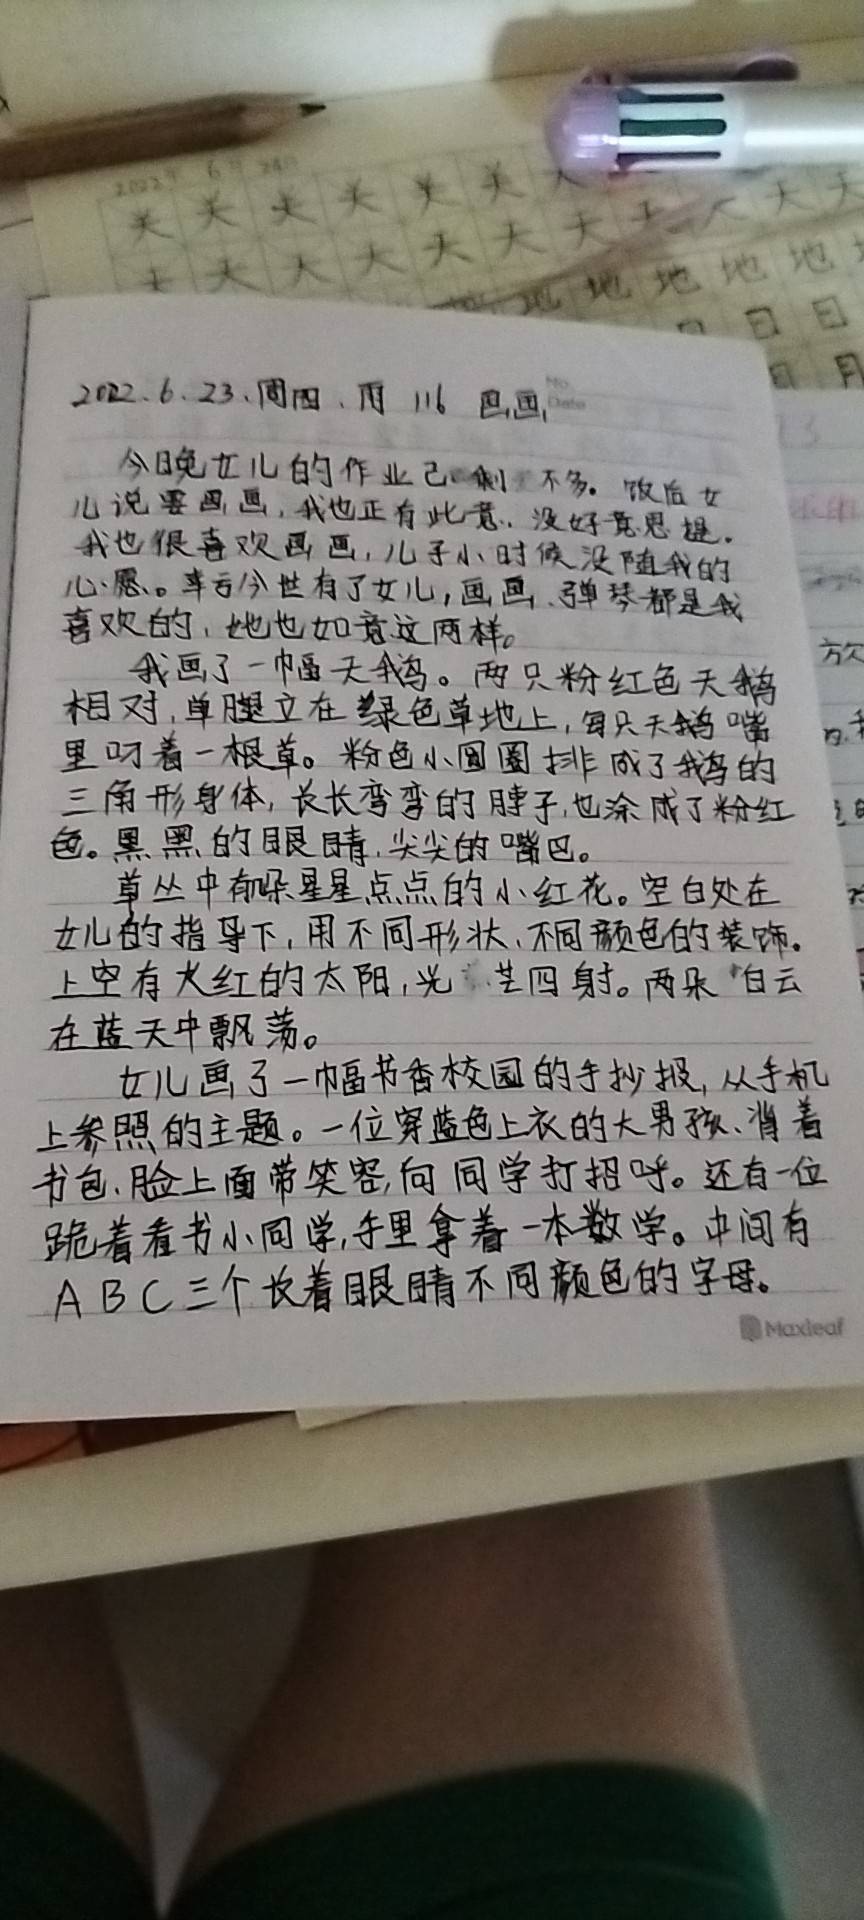 2022年 6月 24日
关 关 关 关 关 关
天 天 天 天 天 天 天 天
地 地 地 地 地
日 日 日
月
2022.6.23.周四.雨 116 画画
No.
Date
今日晚女儿的作业已剩不多。饭后女
儿说要画画,我也正有此意,没好意思提。
我也很喜欢画画,儿子小时候没随我的
心愿。幸亏今世有了女儿,画画、弹琴都是我
喜欢的,她也如意这两样。
我画了一幅天鹅。两只粉红色天鹅
相对,单腿立在绿色草地上,每只天鹅嘴
里叼着一根草。粉色小圆圈排成了鹅的
三角形身体,长长弯弯的脖子,也涂成了粉红
色。黑黑的眼睛,尖尖的嘴巴。
草丛中有朵星星点点的小红花。空白处在
女儿的指导下,用不同形状、不同颜色的装饰。
上空有火红的太阳,光芒四射。两朵白云
在蓝天中飘荡。
女儿画了一幅书香校园的手抄报,从手机
上参照的主题。一位穿蓝色上衣的大男孩、背着
书包、脸上面带笑容,向同学打招呼。还有一位
跪着看书小同学,手里拿着一本数学。中间有
ABC三个长着眼睛不同颜色的字母。
Maxleaf